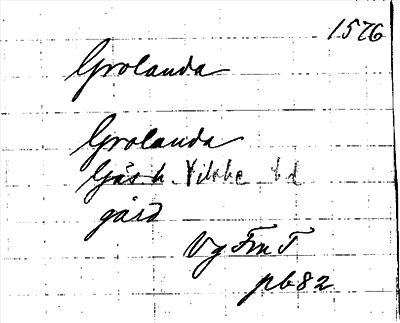 1576
Grolanda
Grolanda
Gäs h. Vilske hd
gård
Vg Fm T
pb 82